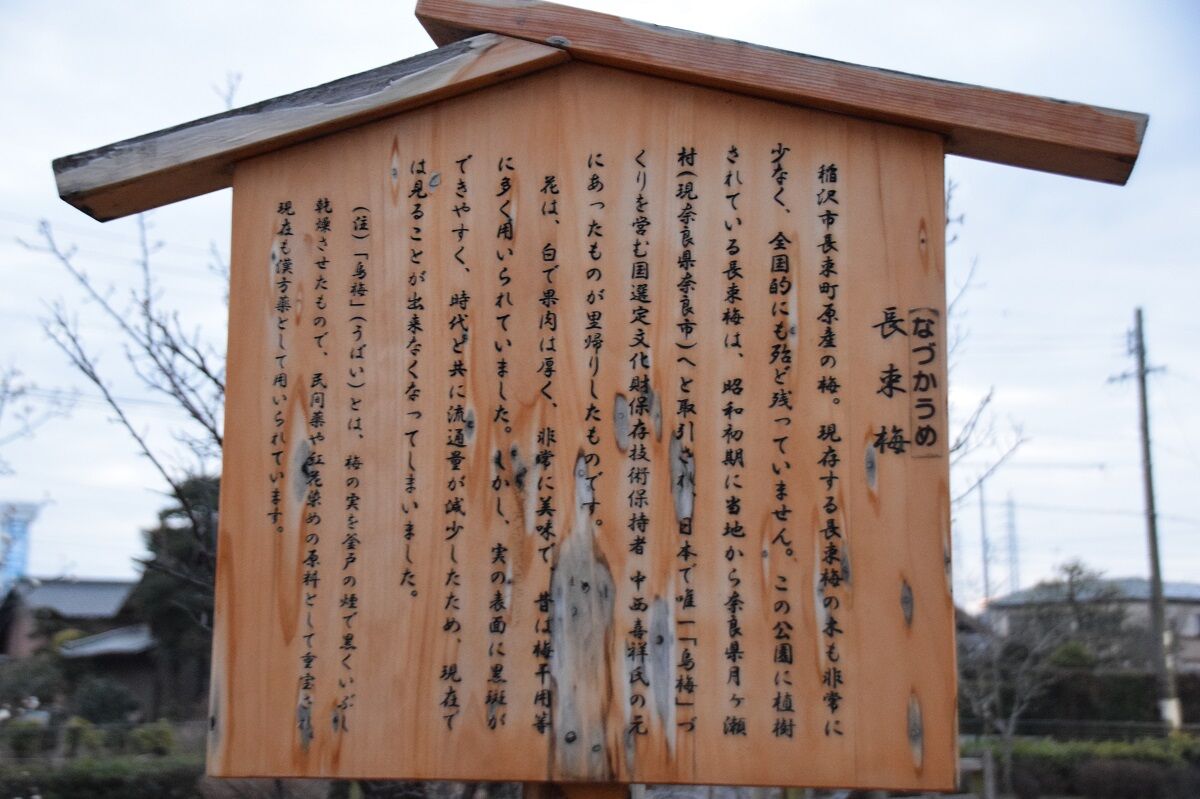 【なづかうめ】
長束梅
稲沢市長束町原産の梅。現存する長束梅の木も非常に
少なく、全国的にも殆ど残っていません。この公園に植樹
されている長束梅は、昭和初期に当地から奈良県月ヶ瀬
村(現奈良県奈良市)へと取引され、日本で唯一「烏梅」づ
くりを営む国選定文化財保存技術保持者 中西喜祥氏の元
にあったものが里帰りしたものです。
花は、白で果肉は厚く、非常に美味で、昔は梅干用等
に多く用いられていました。しかし、実の表面に黒斑が
できやすく、時代と共に流通量が減少したため、現在で
は見ることが出来なくなってしまいました。
(注)「烏梅」(うばい)とは、梅の実を釜戸の煙で黒くいぶし
乾燥させたもので、民間薬や紅花染めの原料として重宝され
現在も漢方薬として用いられています。